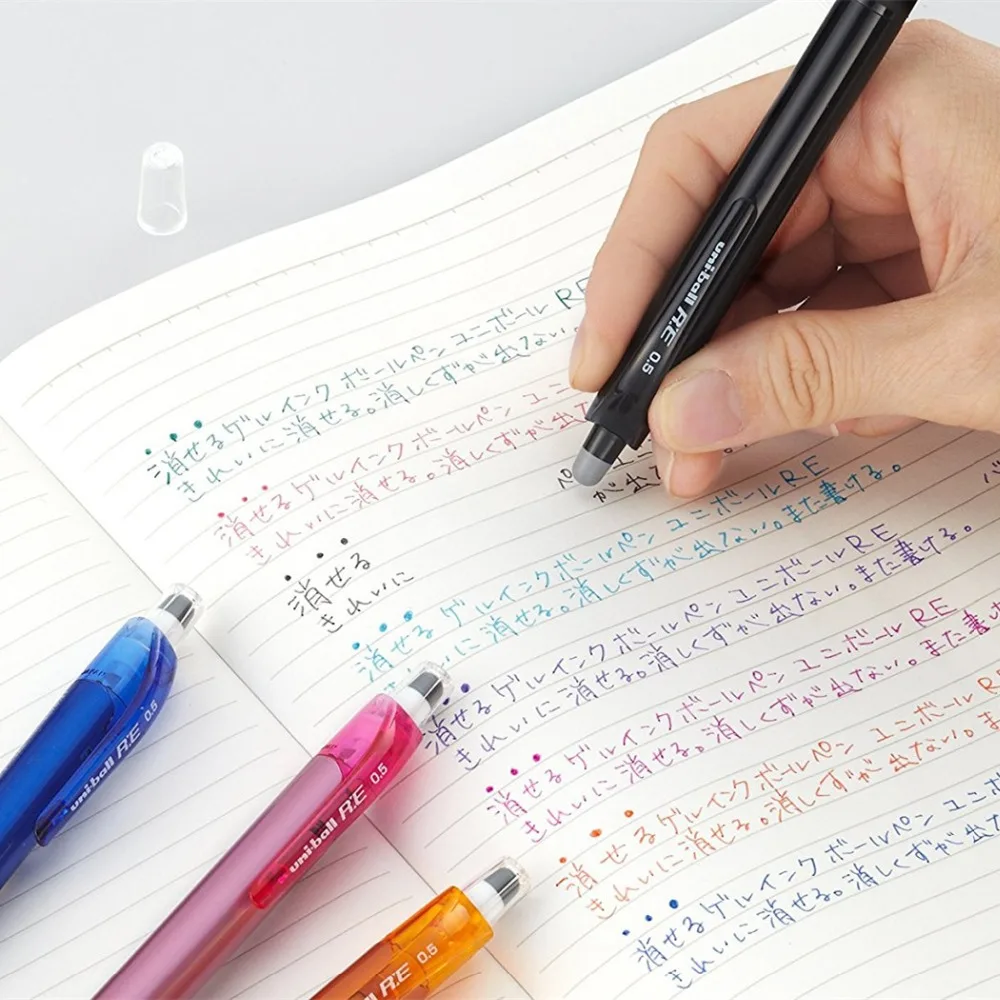 消せるゲルインクボールペン ユニボール RE
きれいに消せる。消しくずが出ない
消せるゲルインクボールペン ユニ
きれいに消せる。消しくずが出
消せる
ペ
きれいに
が出
消せるゲルインクボールペン ユニボールRE
きれいに消せる。消しくずが出ない。また書ける。
消せるゲルインクボールペン ユニボールRE
きれいに消せる。消しくずが出ない。また書ける。
消せるゲルインクボールペン ユニボールRE
きれいに消せる。消しくずが出ない。また書け
消せるゲルインクボールペン ユニボールR
きれいに消せる。消しくずが出ない。ま
消せるゲルインクボールペン ユニボ
きれいに消せる。消しくずが出な
uni-ball R:E 0.5
uni-ball R:E 0.5
uni-ball R:E 0.5
R:E 0.5